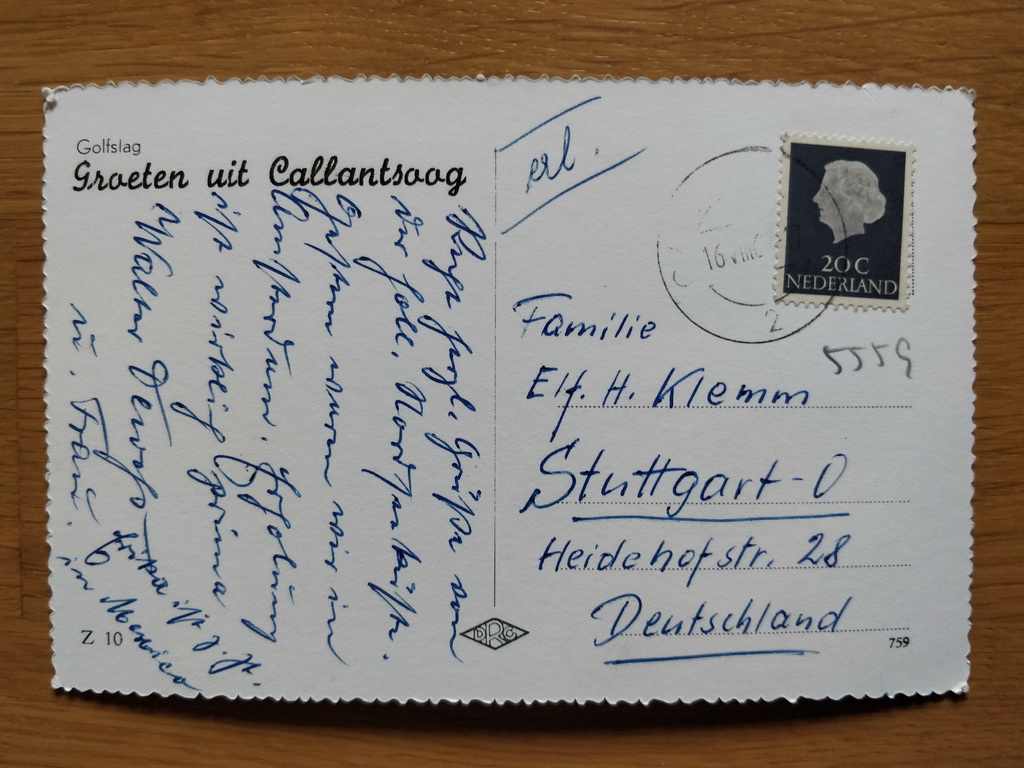 Golfslag
Groeten uit Callantsoog
erl.
16 VIII
2
20 C
NEDERLAND
5559
Familie
Elf. H. Klemm
Stuttgart-O
Heidehofstr. 28
Deutschland
Grüße von
der holl. Nordseeküste.
Gestern waren wir in
Amsterdam. Erholung
ist wirklich prima
Walter
u. Frau.
ist z. Zt.
in Mexico
Z 10
DRC
759